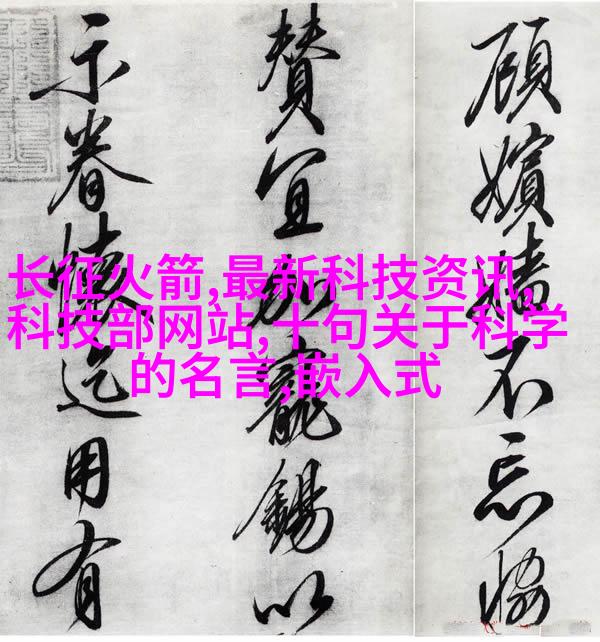 顧嬪嬙不忘恊
賛宜加寵錫以
示眷懷迄用有
长征火箭,最新科技资讯,
科技部网站,十句关于科学
的名言,嵌入式